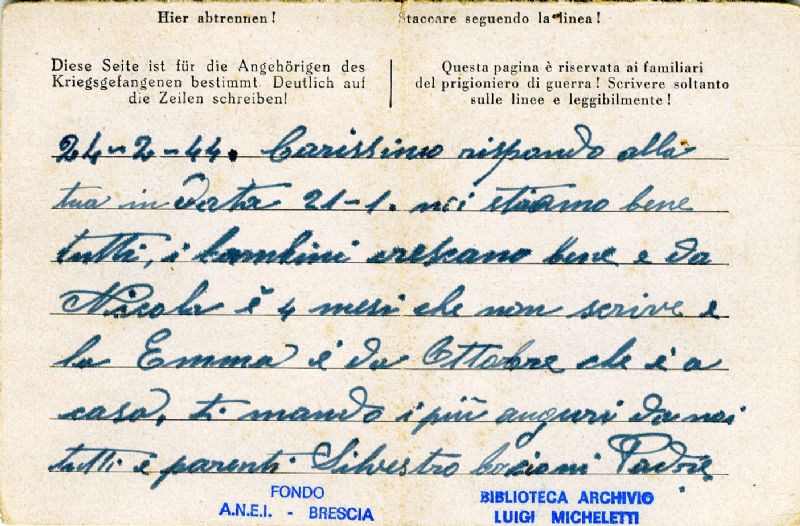 Hier abtrennen!
Staccare seguendo la linea!
Diese Seite ist für die Angehörigen des
Kriegsgefangenen bestimmt. Deutlich auf
die Zeilen schreiben!
Questa pagina è riservata ai familiari
del prigioniero di guerra! Scrivere soltanto
sulle linee e leggibilmente!
24-2-44. Carissimo rispondo alla
tua in data 21-1. noi stiamo bene
tutti, i bambini crescano bene e da
Nicola è 4 mesi che non scrive e
la Emma è da Ottobre che è a
casa, ti mando i più auguri da noi
tutti e parenti Silvestro Padre
FONDO
A.N.E.I. - BRESCIA
BIBLIOTECA ARCHIVIO
LUIGI MICHELETTI